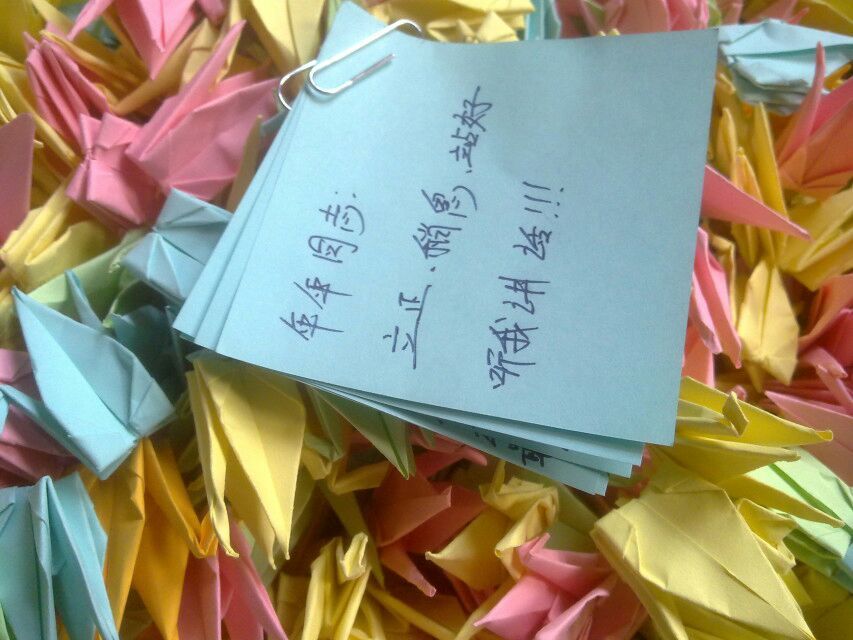 军军同志:
立正、稍息、站好
听我讲话!!!